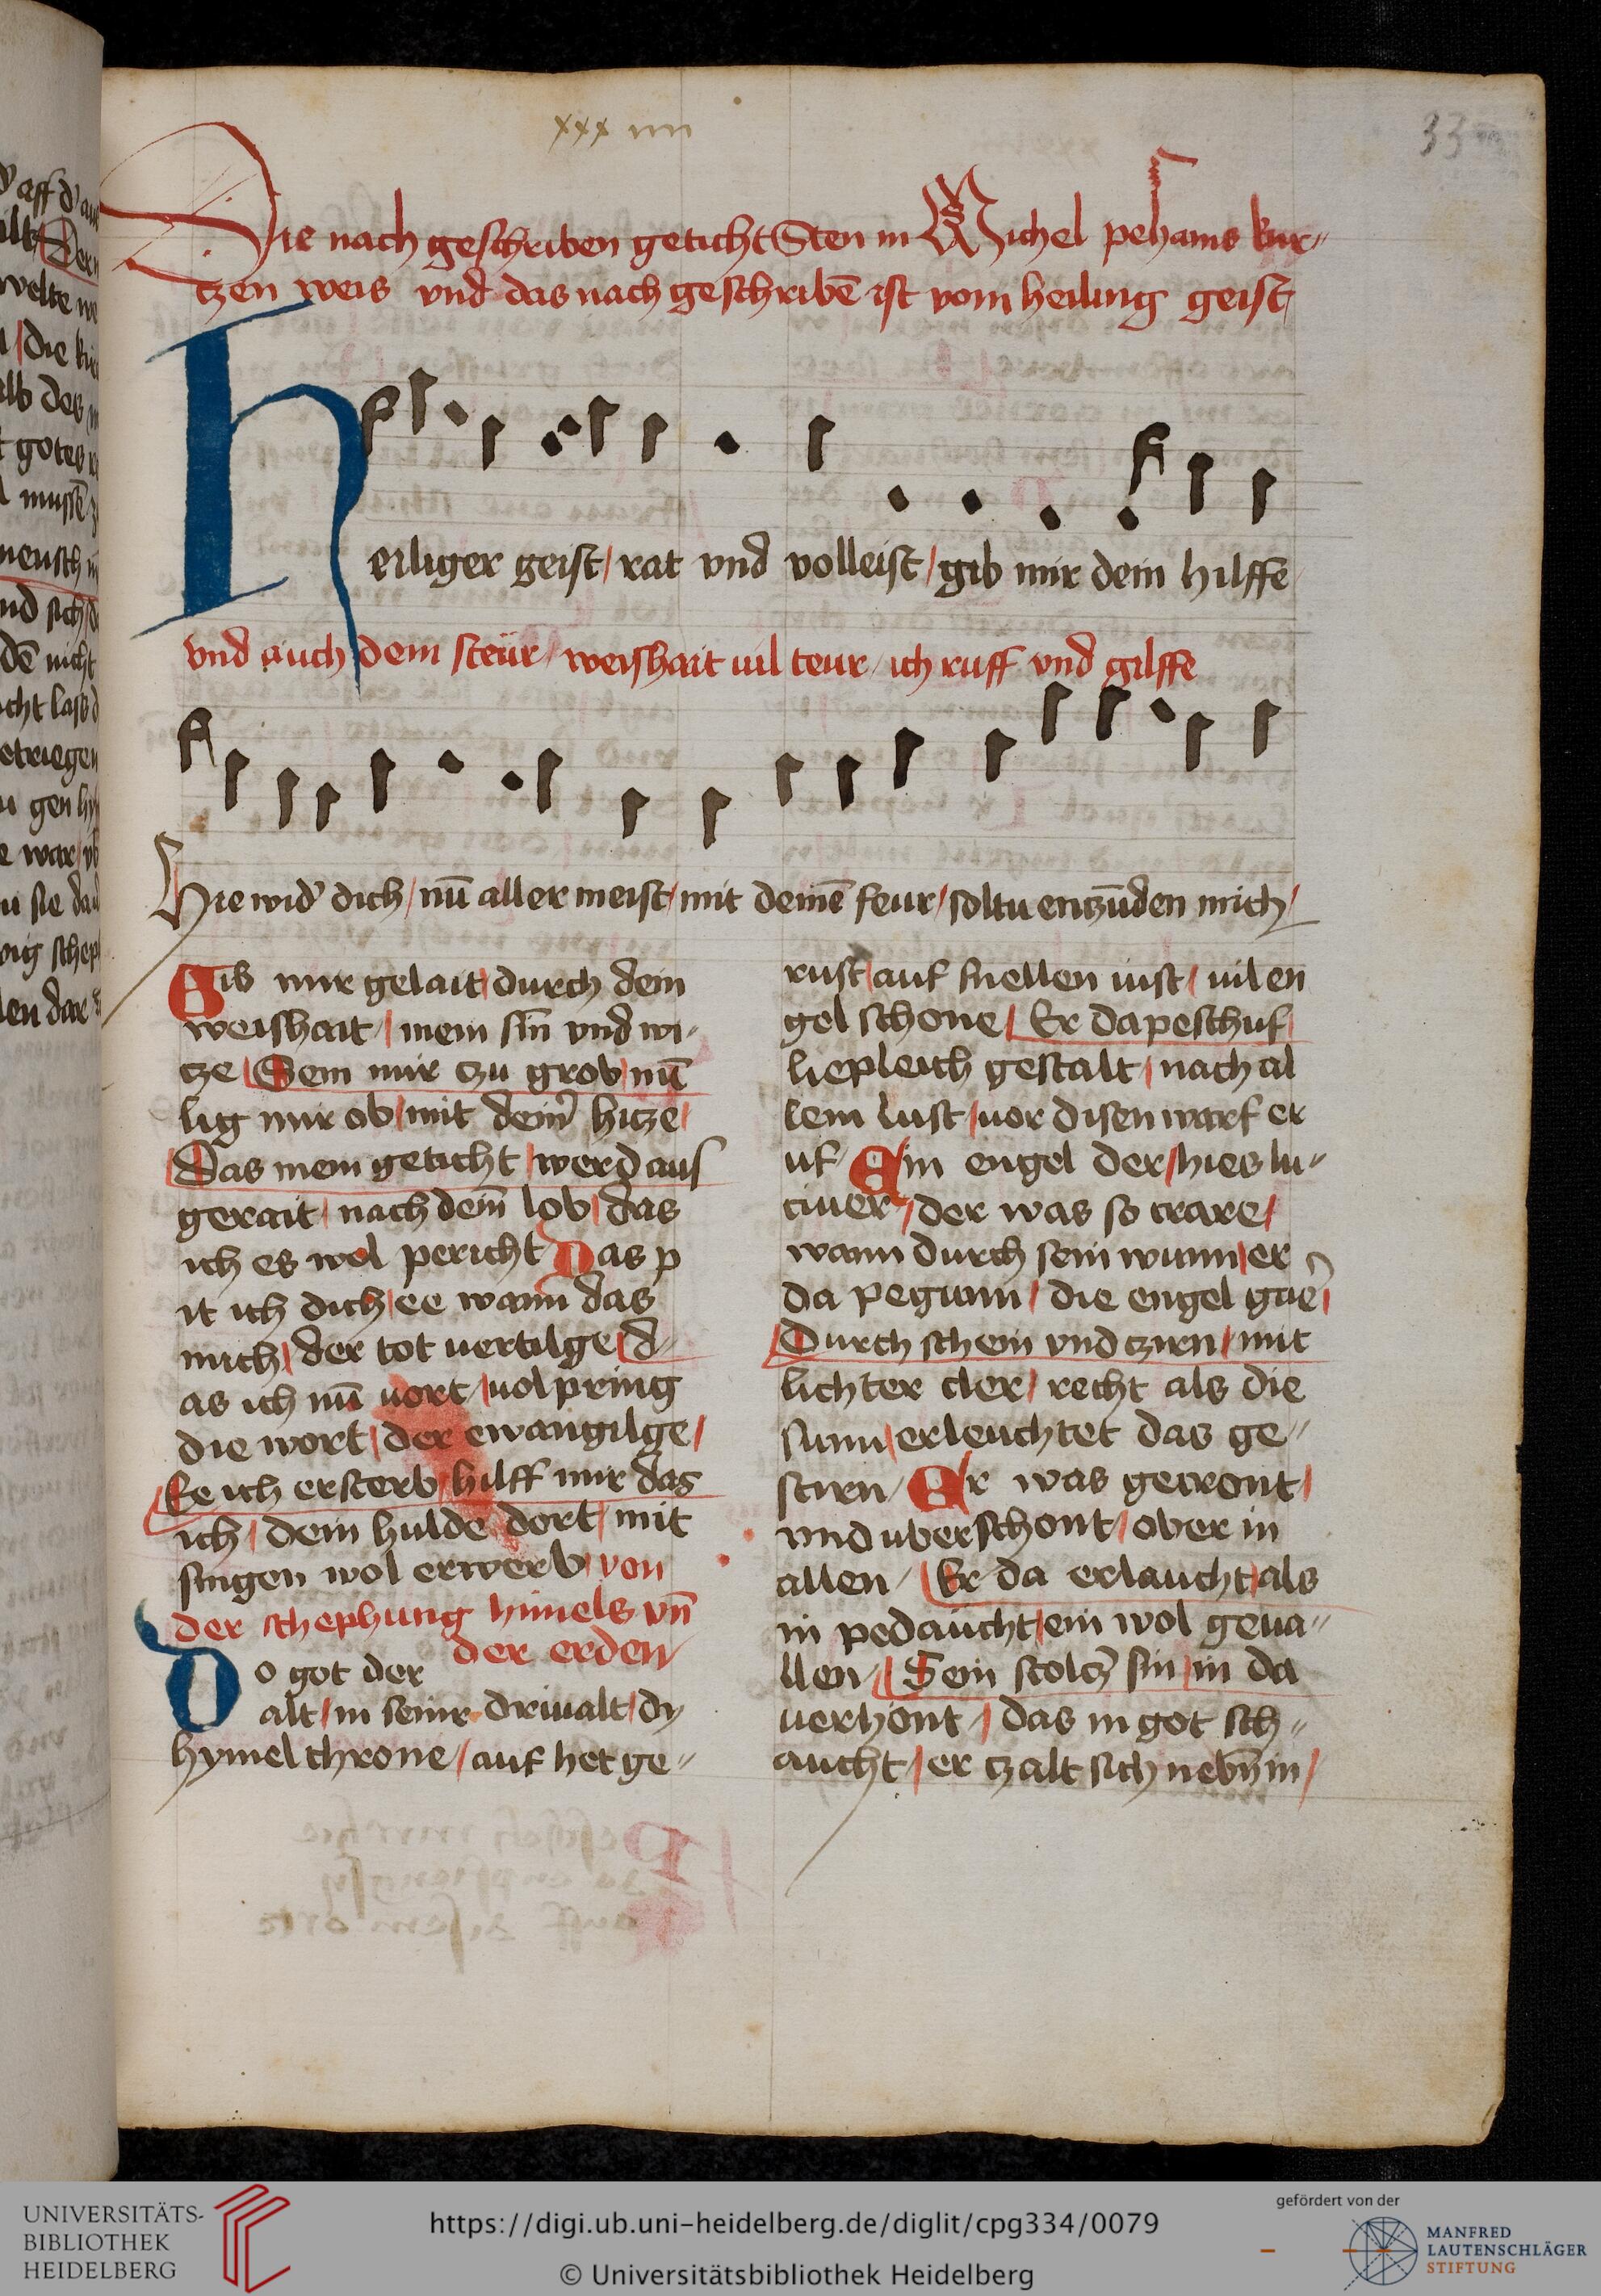 xxx iiii
33
Die nach geschriben geticht Sten in Michel pehams kur〃
tzen weis vnd das nach geschribē ist vom heiling geist
Heiliger geist/ rat vnd volleist/ gib mir dein hilffe
vnd auch dein steür/ weishait uil teur/ ich ruff vnd gilffe
Hie wid' dich/ nū aller meist/ mit deinē feur/ soltu enczūden mich/
Gib mir gelait/ durch dein
weishait/ mein sin̄ vnd wi〃
cze/ Sein mir czu grob/ nū
lig mir ob/ mit dein' hicze/
Das mein geticht/ werd aus
gerait/ nach dein̄ lob/ das
ich es wol pericht Das p
it ich dich/ ee wann das
mich/ der tot uertilge/ d〃
as ich nū uort/ uolpring
die wort/ der ewangilge/
Ee ich ersterb/ hilff mir das
ich/ dein hulde dort/ mit
singen wol erwerb/ von
der schephung himels vn̄
der erden
Do got der
alt/ in seinr driualt/ dy
hymel throne/ auf het ge〃
rust/ auf snellen iust/ uil en
gel schone/ Er da peschuf
liepleich gestalt/ nach al
lem lust/ uor disen warf er
uf/ Ein engel der/ hies lu〃
ciuer/ der was so crare/
wann durch sein wunn/ er
da pegunn/ die engel gue'
Durch schein vnd czirn/ mit
lichter cler/ recht als die
sunn/ erleuchtet das ge〃
stirn/ Er was gecront/
vnd uberschont/ ober in
allen/ Er da erlaucht/ als
in pedaucht/ ein wol geua〃
llen/ Sein stolcz sin/ in da
uerhont/ das in got sch〃
aucht/ er czalt sich nebn̄ in/
UNIVERSITÄTS-
BIBLIOTHEK
HEIDELBERG
https://digi.ub.uni-heidelberg.de/diglit/cpg334/0079
© Universitätsbibliothek Heidelberg
gefördert von der
MANFRED
LAUTENSCHLÄGER
STIFTUNG